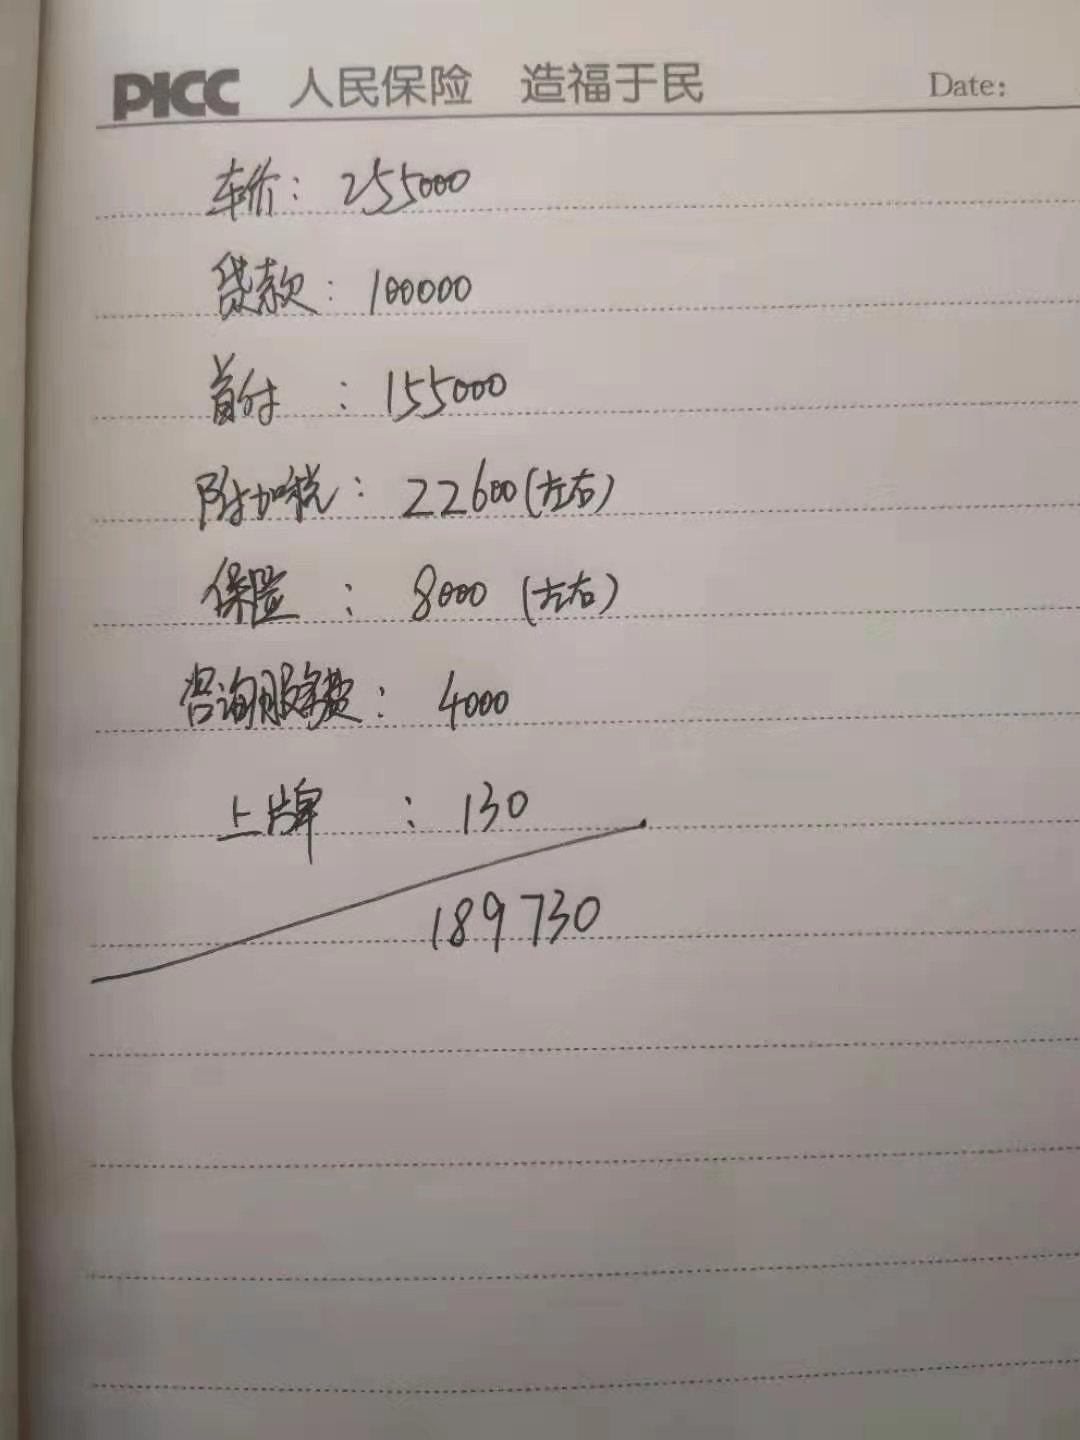 PICC 人民保险 造福于民 Date:
车价: 255000
贷款: 100000
首付 : 155000
附加税: 22600(左右)
保险 : 8000 (左右)
咨询服务费: 4000
上牌 : 130
189730